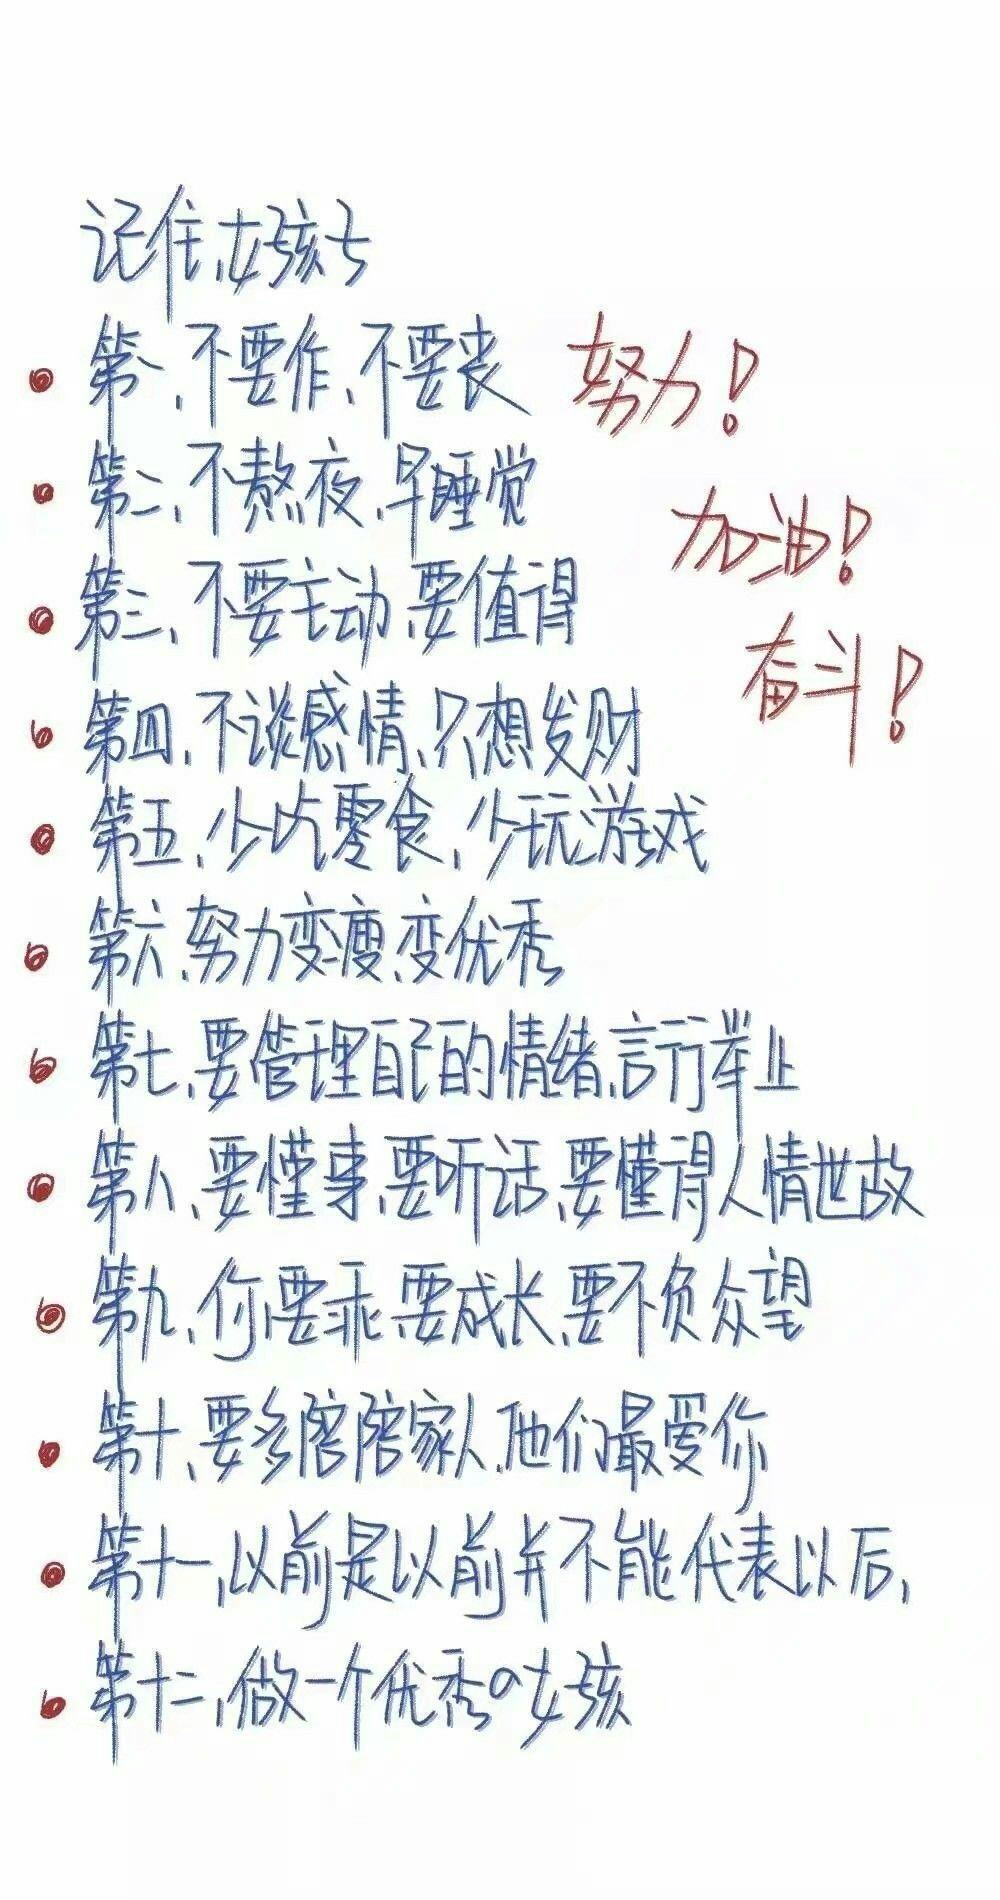 记住、女孩子
第一、不要作、不要丧
努力！
第二、不熬夜、早睡觉
加油！
第三、不要主动、要值得
奋斗！
第四、不谈感情、只想发财
第五、少吃零食、少玩游戏
第六、努力变瘦、变优秀
第七、要管理自己的情绪、言行举止
第八、要懂事、要听话、要懂得人情世故
第九、你要乖、要成长、要不负众望
第十、要多陪陪家人、他们最爱你
第十一、以前是以前并不能代表以后，
第十二、做一个优秀の女孩